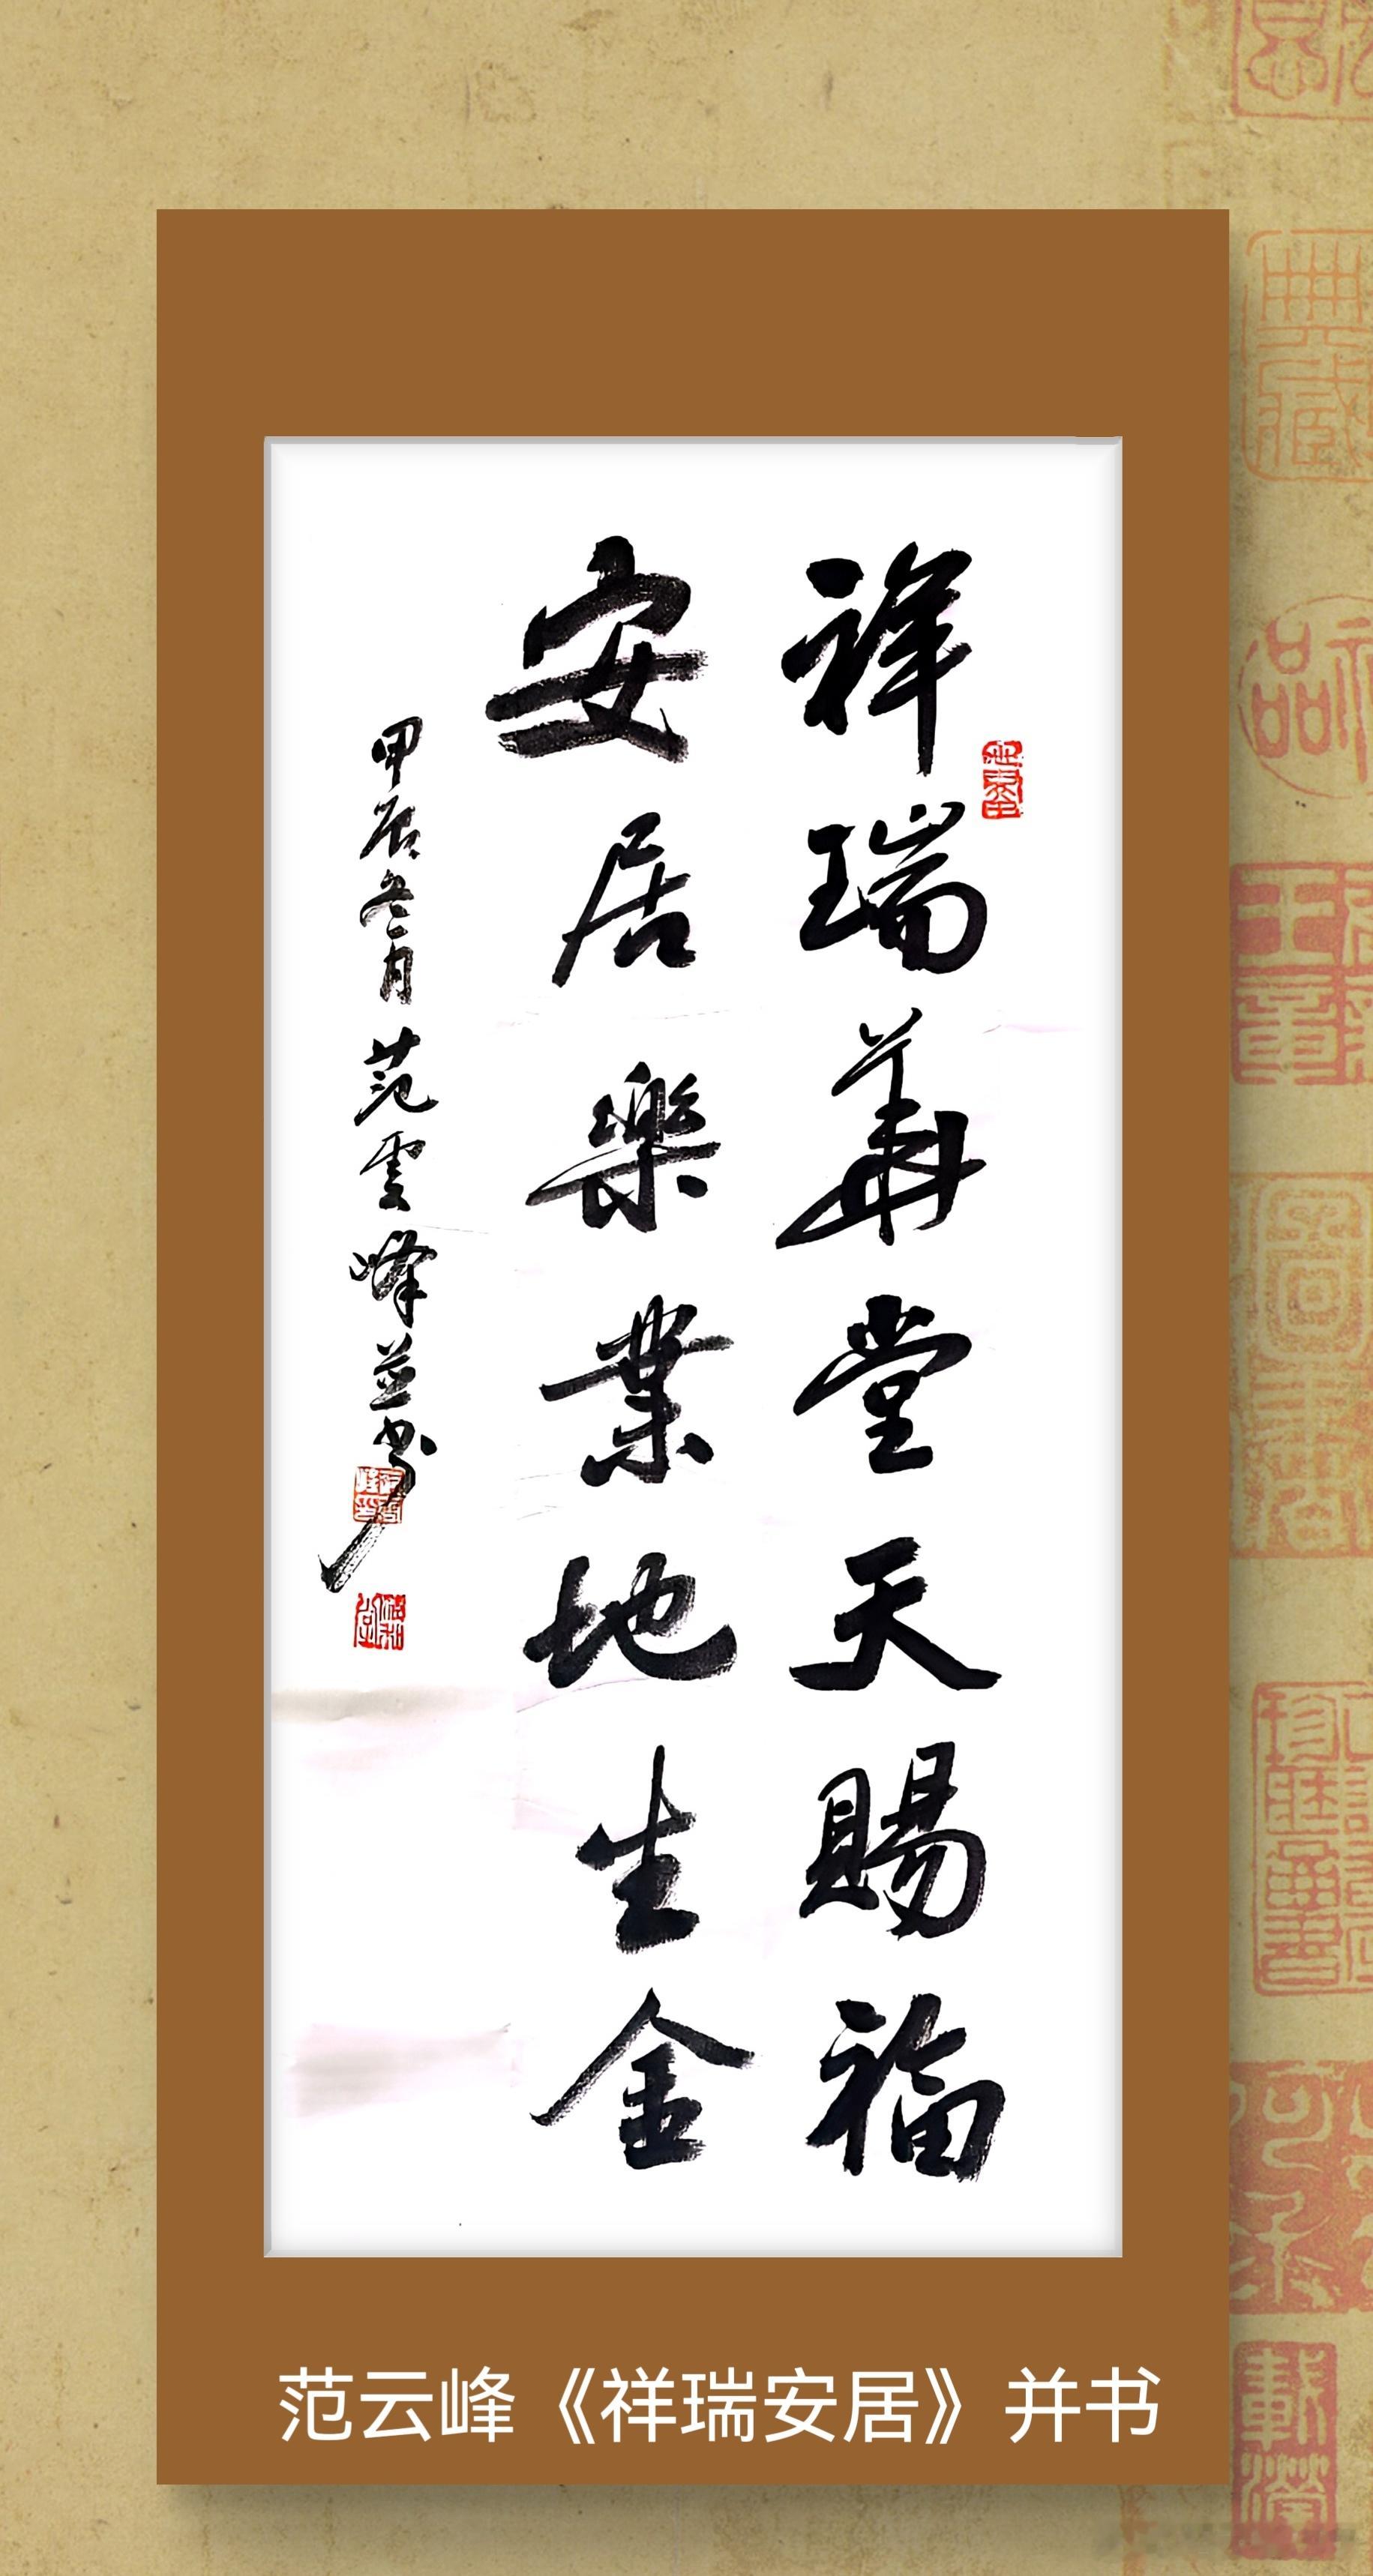 祥瑞華堂天賜福
安居樂業地生金
甲辰冬月范雲峰並書
范云峰《祥瑞安居》并书